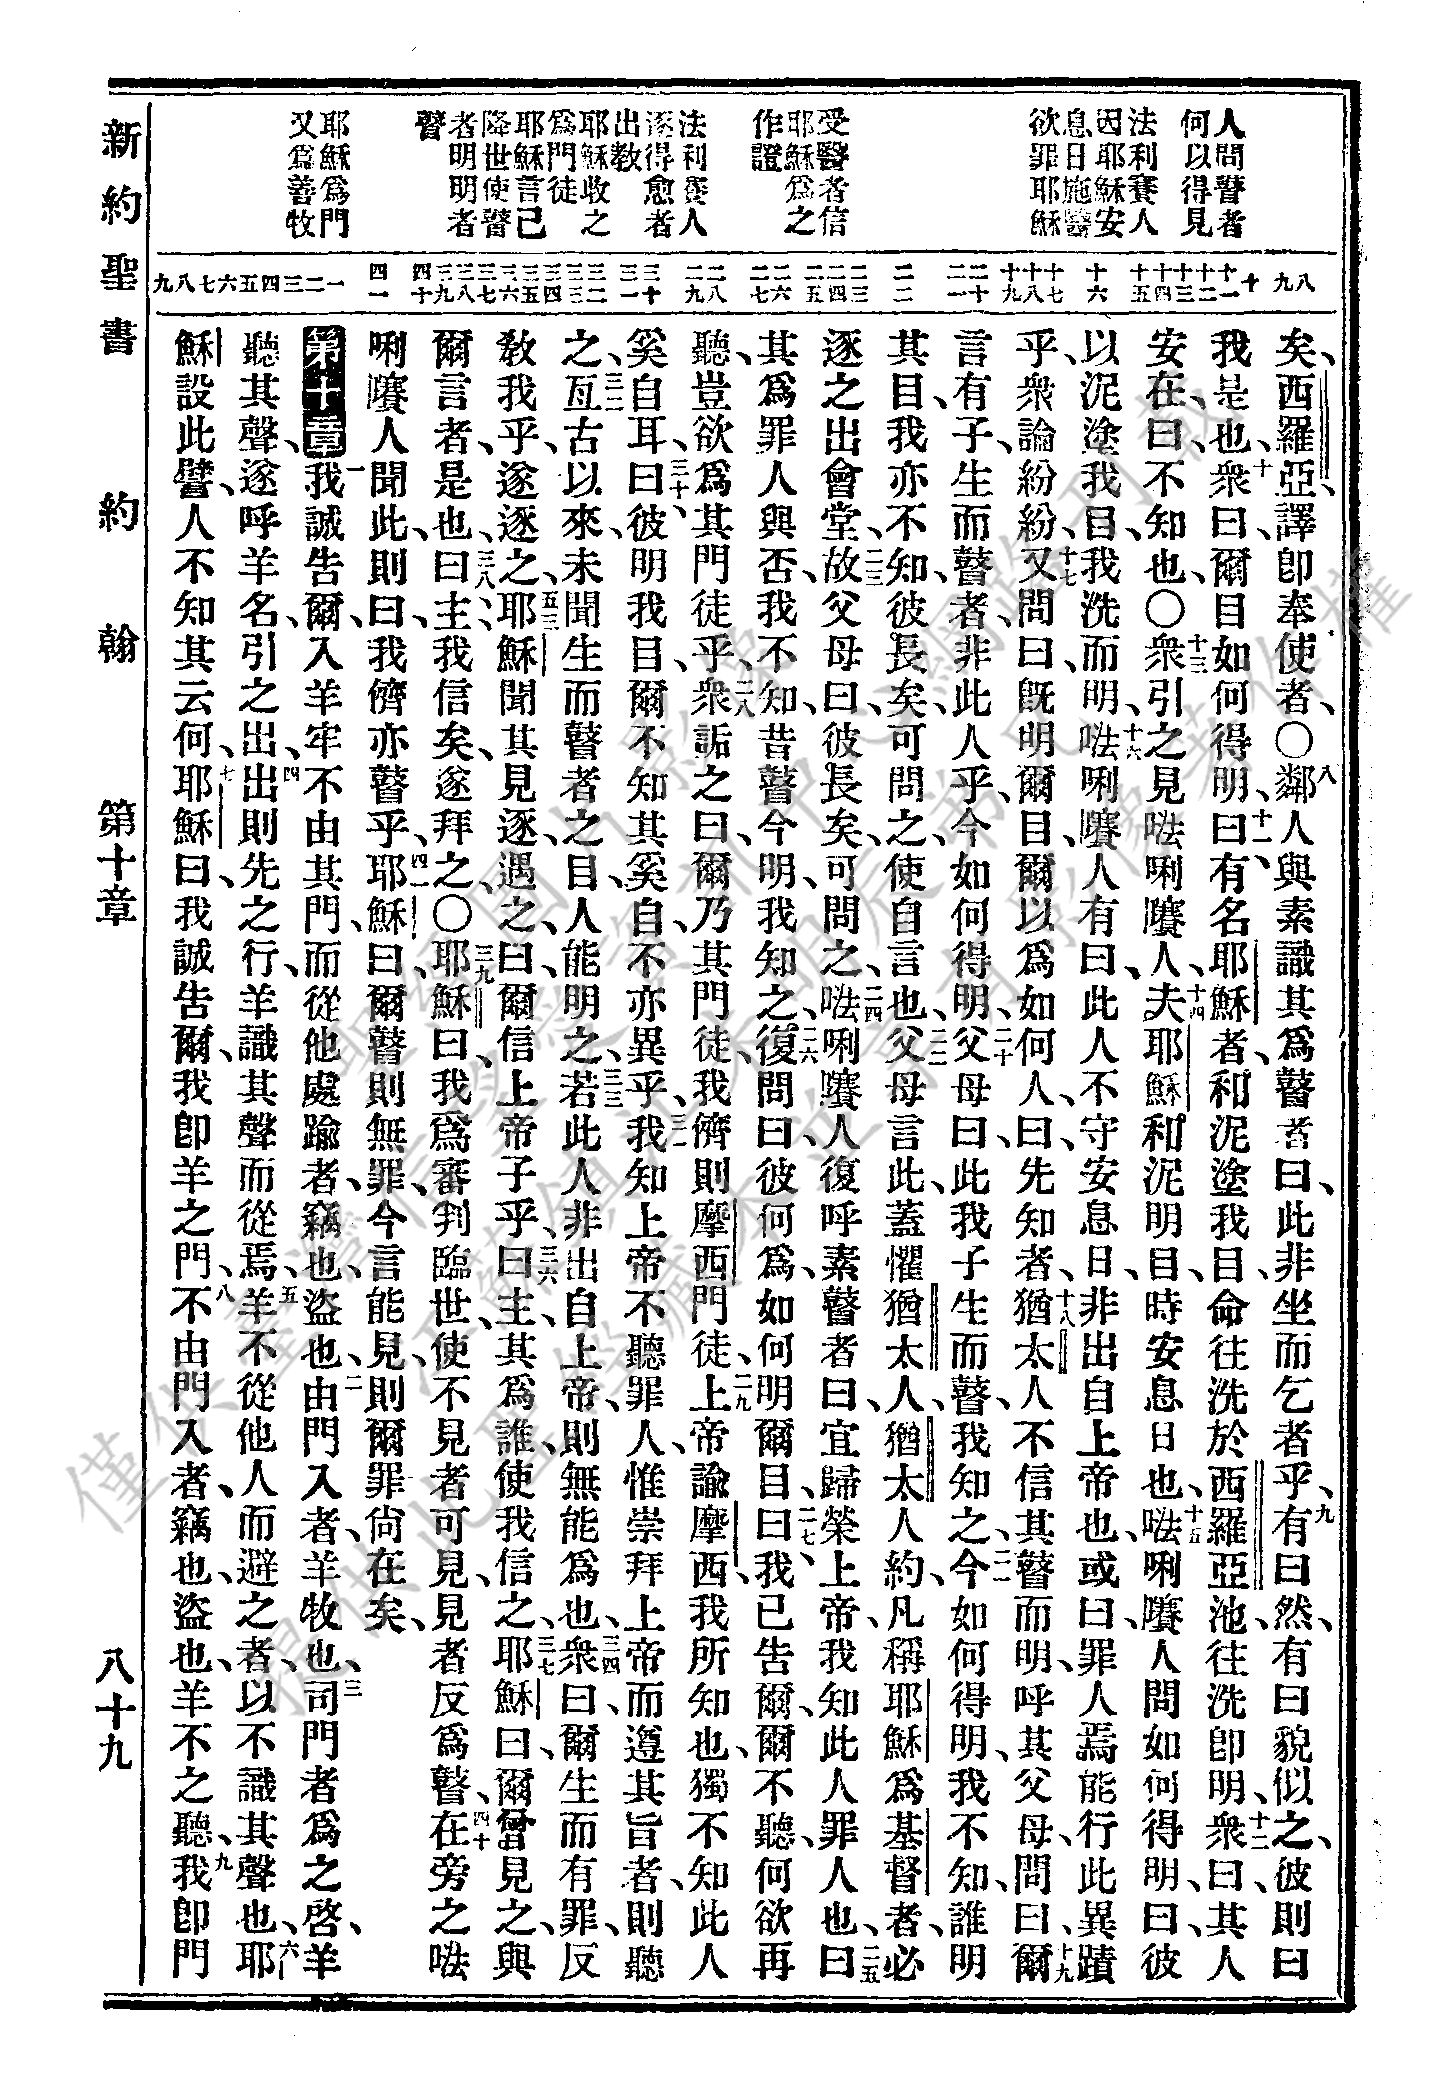 人問瞽者
何以得見
法利賽人
因耶穌安
息日施醫
欲罪耶穌
受醫者信
耶穌爲之
作證
法利賽人
逐得愈者
出教
耶穌收之
爲門徒
耶穌言己
降世使瞽
者明明者
瞽
耶穌爲門
又爲善牧
八 九 十 十一 十二 十三 十四 十五 十六 十七 十八 十九 二十 二一 二二 二三 二四 二五 二六 二七 二八 二九 三十 三一 三二 三三 三四 三五 三六 三七 三八 三九 四十 四一 一 二 三 四 五 六 七 八 九
矣、西羅亞、譯卽奉使者、〇八鄰人與素識其爲瞽者曰、此非坐而乞者乎、九有曰然、有曰貌似之、彼則曰
我是也、十衆曰、爾目如何得明、十一曰、有名耶穌者、和泥塗我目、命往洗於西羅亞池、往洗卽明、十二衆曰、其人
安在、曰、不知也、〇十三衆引之見𠵽唎㘔人、十四夫耶穌和泥明目、時安息日也、十五𠵽唎㘔人問如何得明、曰、彼
以泥塗我目、我洗而明、十六𠵽唎㘔人有曰、此人不守安息日、非出自上帝也、或曰、罪人焉能行此異蹟
乎、衆論紛紛、十七又問曰、旣明爾目、爾以爲如何人、曰、先知者、十八猶太人不信其瞽而明、呼其父母、十九問曰、爾
言有子、生而瞽者、非此人乎、今如何得明、二十父母曰、此我子生而瞽、我知之、二一今如何得明、我不知、誰明
其目、我亦不知、彼長矣、可問之、使自言也、二二父母言此、蓋懼猶太人、猶太人約、凡稱耶穌爲基督者、必
逐之出會堂、二三故父母曰、彼長矣、可問之、二四𠵽唎㘔人復呼素瞽者曰、宜歸榮上帝、我知此人罪人也、二五曰、
其爲罪人與否、我不知、昔瞽今明、我知之、二六復問曰、彼何爲、如何明爾目、二七曰、我已告爾、爾不聽、何欲再
聽、豈欲爲其門徒乎、二八衆詬之曰、爾乃其門徒、我儕則摩西門徒、二九上帝諭摩西、我所知也、獨不知此人
奚自耳、三十曰、彼明我目、爾不知其奚自、不亦異乎、三一我知上帝不聽罪人、惟崇拜上帝而遵其旨者、則聽
之、三二亙古以來、未聞生而瞽者之目、人能明之、三三若此人非出自上帝、則無能爲也、三四衆曰、爾生而有罪、反
教我乎、遂逐之、三五耶穌聞其見逐、遇之、曰、爾信上帝子乎、三六曰、主、其爲誰、使我信之、三七耶穌曰、爾曾見之、與
爾言者、是也、三八曰、主、我信矣、遂拜之、〇三九耶穌曰、我爲審判臨世、使不見者可見、見者反爲瞽、四十在旁之𠵽
唎㘔人聞此、則曰、我儕亦瞽乎、四一耶穌曰、爾瞽則無罪、今言能見、則爾罪尙在矣、
第十章一我誠告爾、入羊牢不由其門、而從他處踰者、竊也、盜也、二由門入者、羊牧也、三司門者爲之啓、羊
聽其聲、遂呼羊名、引之出、四出則先之行、羊識其聲而從焉、五羊不從他人而避之者、以不識其聲也、六耶
穌設此譬、人不知其云何、七耶穌曰、我誠告爾、我卽羊之門、八不由門入者、竊也、盜也、羊不之聽、九我卽門
新約聖書 約翰 第十章 八十九